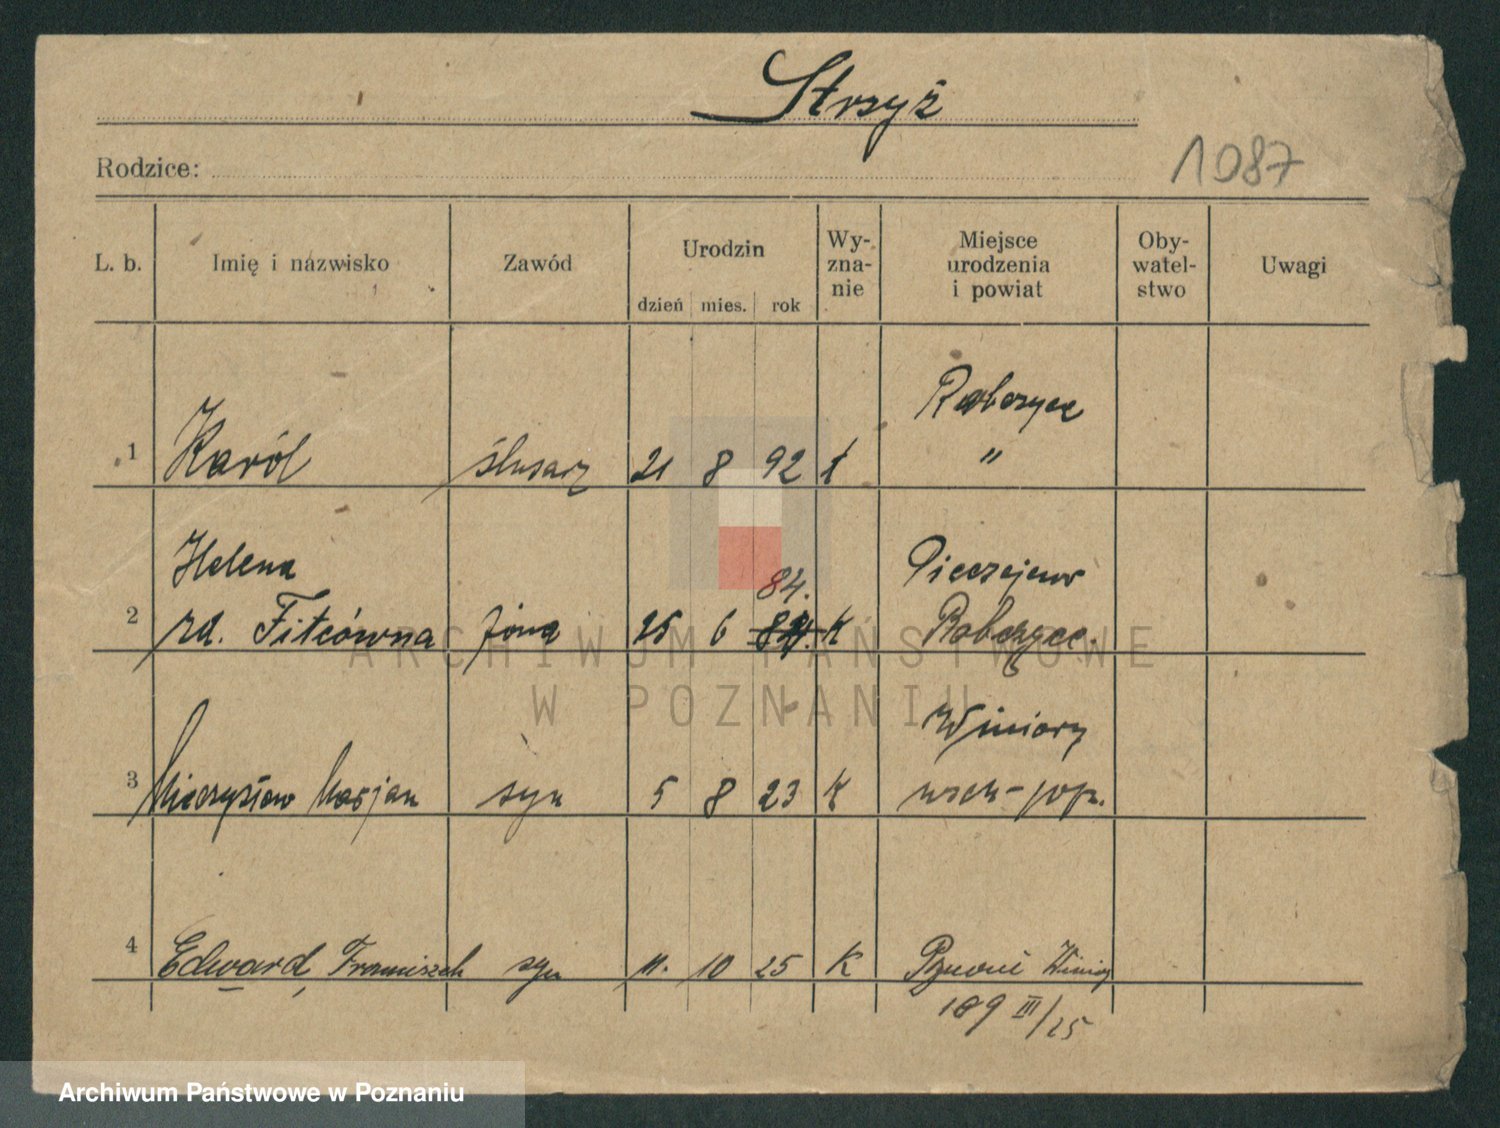 Strzyż
Rodzice:
1087
L. b. Imię i nazwisko Zawód Urodzin dzień mies. rok Wy-zna-nie Miejsce urodzenia i powiat Oby-watel-stwo Uwagi
1 Karól ślusarz 21 8 92 k
"
Helena 84.
2 rd. Fitcówna żona 25 6 K
Winiary
3 Mieczysław Marjan syn 5 8 23 K
4 Edward, Franciszek syn 11. 10 25 K Poznań Winiary
189 III/25
ARCHIWUM PAŃSTWOWE
W POZNANIU
Archiwum Państwowe w Poznaniu